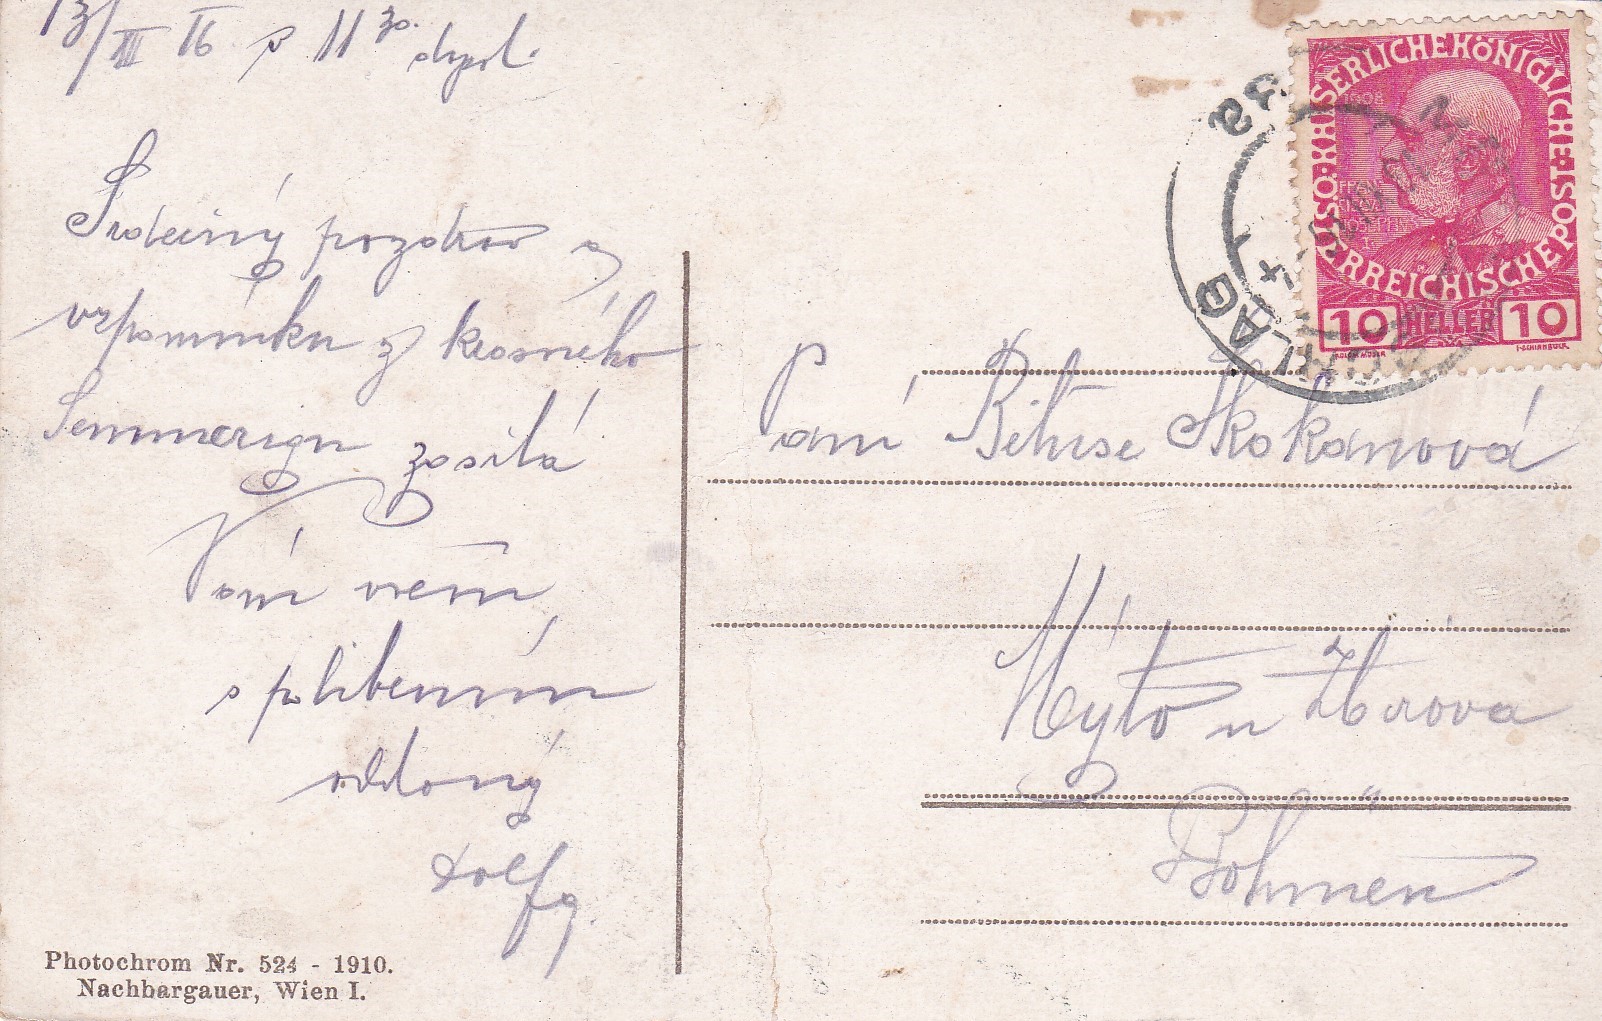 13/III 16 v 11 30. dopol.
Srdečný pozdrav a
vzpomínku z krásného
Semmeringu zasílá
Vám všem
s políbením
oddaný
Dolfy.
Photochrom Nr. 524 - 1910.
Nachbargauer, Wien I.
KAISERLICHE KÖNIGLICHE ÖSTERREICHISCHE POST
1908
10 HELLER 10
Paní
Skokanová
Mýto u Zbirova
Böhmen